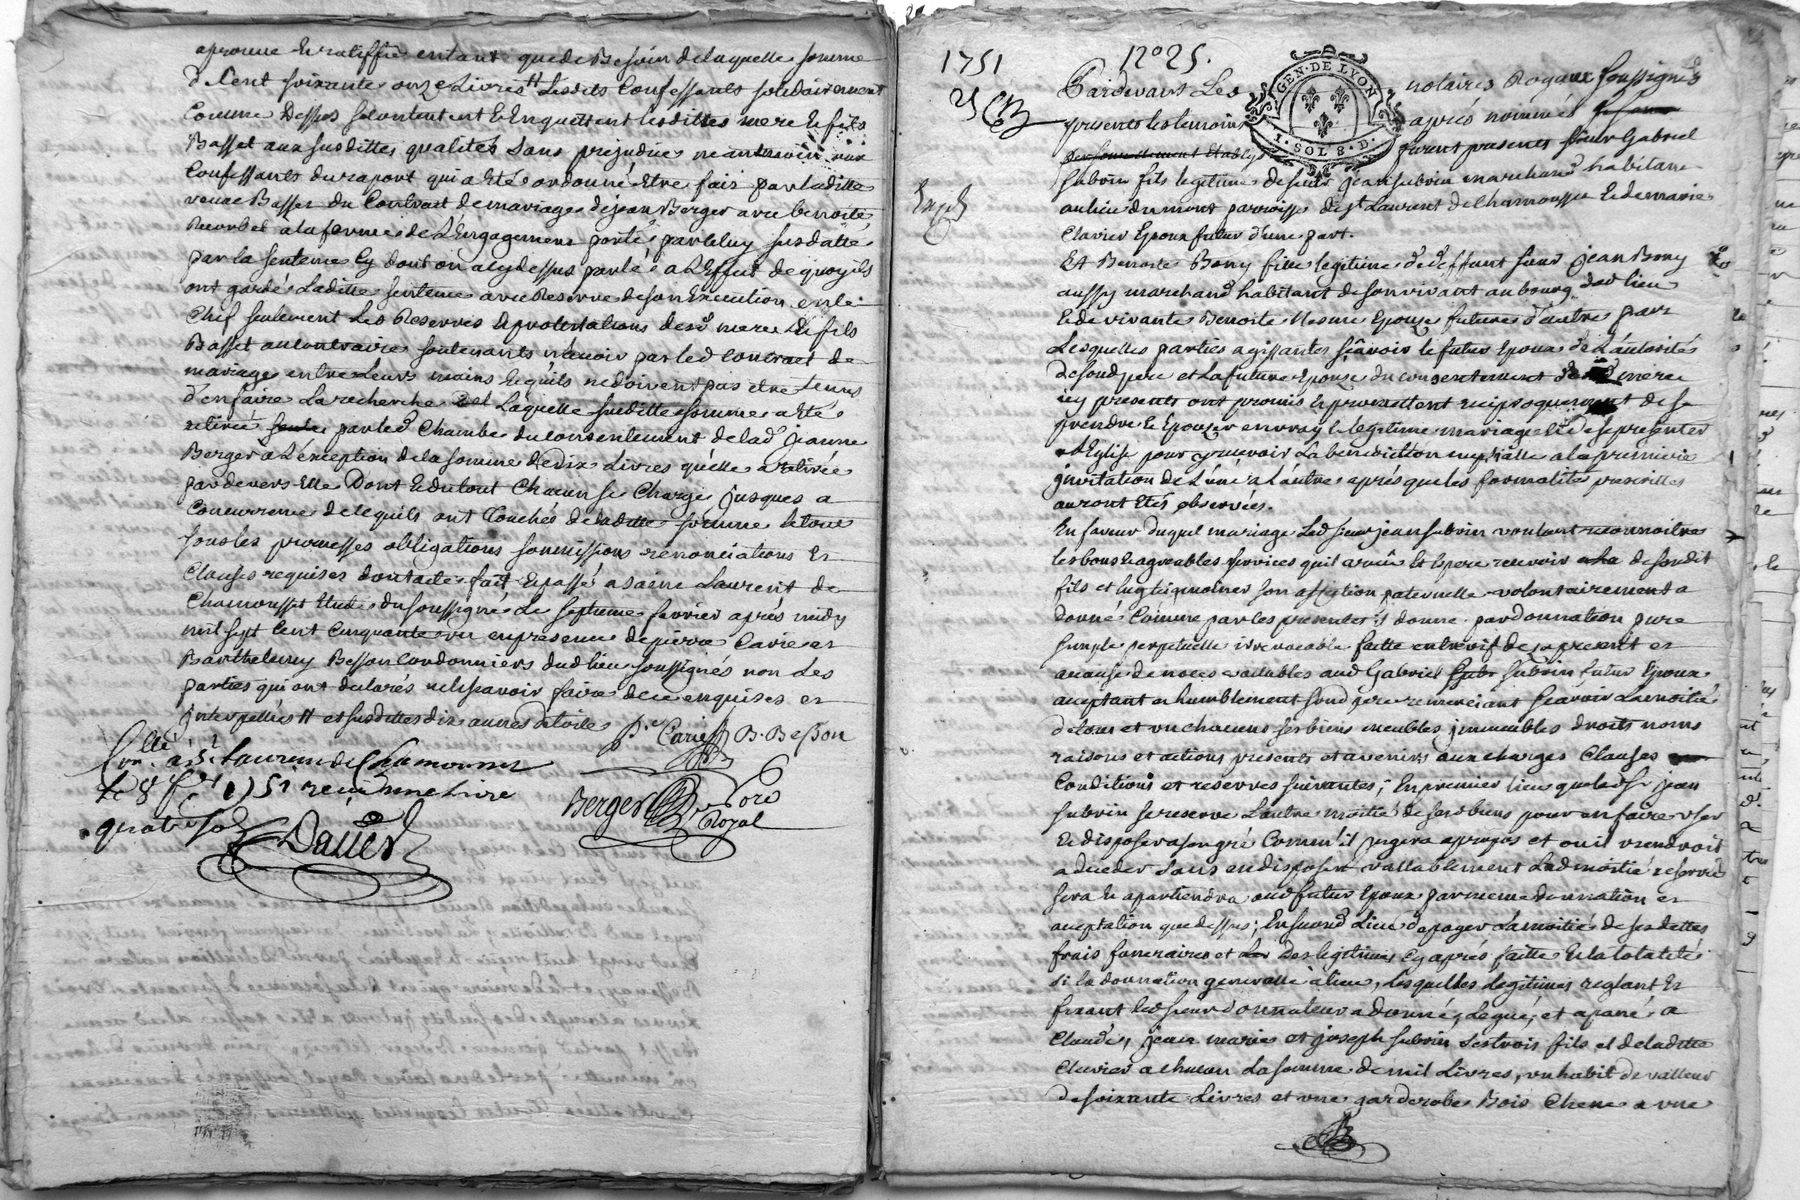 aprouve et ratiffie entant que de Besoin de laquelle somme
de Cent soixante onze Livres Lesdits Confessants solidairement
Comme Dessus se contentent et Enquittent lesdittes mere et fils
Basset aux susdittes qualités sans prejudice neantmoins aux
Confessants du raport qui a été ordonné etre fait par laditte
veuve Basset du Contract de mariage de jean Berger avec benoite
a la forme de L'Engagement porté par celuy susdatté
par la sentence Cy dont on a cy dessus parlé a L'Effect de quoy ils
ont gardé Laditte sentence avec Reserve de son Execution en le
Chef seulement Les Reserves et protestations desd mere et fils
Basset au contraire soutenants n'avoir par led contract de
mariage entre Leurs mains et quils ne doivent pas etre tenus
d'en faire La recherche et Laquelle susditte somme a été
retirée par led Chambe du consentement de lad jeanne
Berger a L'exception de la somme de dix Livres qu'elle a retirée
pardevers Elle Dont et du tout Chacun se Charge jusques a
Concurrence de ce quils ont touchés de laditte somme le tout
sous les promesses obligations soumissions renonciations et
Clauses requises dont acte fait et passé a saint Laurent de
Chamousset Etude du soussigné Le septieme fevrier aprés midy
mil sept Cent Cinquante un en presence de pierre Carie et
Barthelemy Besson Cordonniers dud lieu soussignés non Les
parties qui ont declarés ne le scavoir faire de ce enquises et
interpellés et susdittes dix aunes de toile
P. Carie B. Besson
Con.lle à St Laurent de Chamousset
Le 8 f.er 1751 reçu une Livre
quatre sols
Berger
Royal
Dauier
1751 N° 25.
25
GEN. DE LYON
SOLS. D.
Pardevant Les notaires Royaux soussignés
presents les temoins aprés nommés
personnellement Etablys furent presents sieur Gabriel
Subrin fils legitime de sieur jean Subrin marchand habitant
au lieu du mont parroisse de St Laurent de Chamousset et de marie
Clavier Epoux futur d'une part.
Et Benoite Bony fille legitime de deffunt sieur jean Bony
aussy marchand habitant de son vivant au bourg dud lieu
et de vivante Benoite Epouze future d'autre part
Lesquelles parties agissantes sçavoir le futur Epoux de L'autorité
de sond pere et La future Epouse du consentement de sa mere
icy presents ont promis et promettent reciproquement de se
prendre et Epouser en vray et legitime mariage et de se presenter
a L'Eglise pour y recevoir La benediction nuptialle a la premiere
invitation de L'une a L'autre aprés que les formalités prescrittes
auront Etés observées.
En faveur duquel mariage Led sieur jean Subrin voulant reconnoitre
les bons et agreables services quil a reçus et Espere recevoir de sondit
fils et luy temoigner son affection paternelle volontairement a
donné Comme par les presentes il donne par donnation pure
simple perpetuelle irrevocable faitte entrevif de a present et
a cause de noces vallables aud Gabriel Subrin futur Epoux
acceptant et humblement sond pere remerciant sçavoir La moitié
de tous et un chacuns ses biens meubles immeubles droits noms
raisons et actions presents et avenirs aux charges Clauses
Conditions et reserves suivantes; En premier lieu que led Sr jean
Subrin se reserve L'autre moitié de sesd biens pour en faire user
et disposer a son gré Comm'il jugera apropos et ou il viendroit
a deceder sans en disposer vallablement Lad moitié reservée
sera et apartiendra aud futur Epoux par meme donnation et
acceptation que dessus; En second Lieu de payer La moitié de ses dettes
frais funeraires et Des legitimes Cy aprés faitte et la totalité
si la donnation generalle a lieu, Lesquelles legitimes reglant et
fixant led sieur donnateur a Donné, Legué, et apané a
Claude, jean marie et joseph Subrin ses trois fils et de laditte
Clavier a chacun La somme de mil Livres, un habit de valleur
de soixante Livres et une garderobe Bois Chene a une